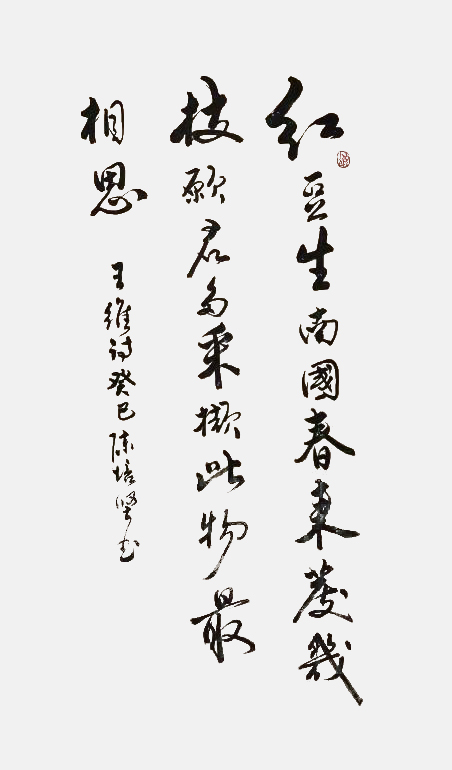 红豆生南國春来發幾
枝願君多采擷此物最
相思
王維詩癸巳陈培坚书